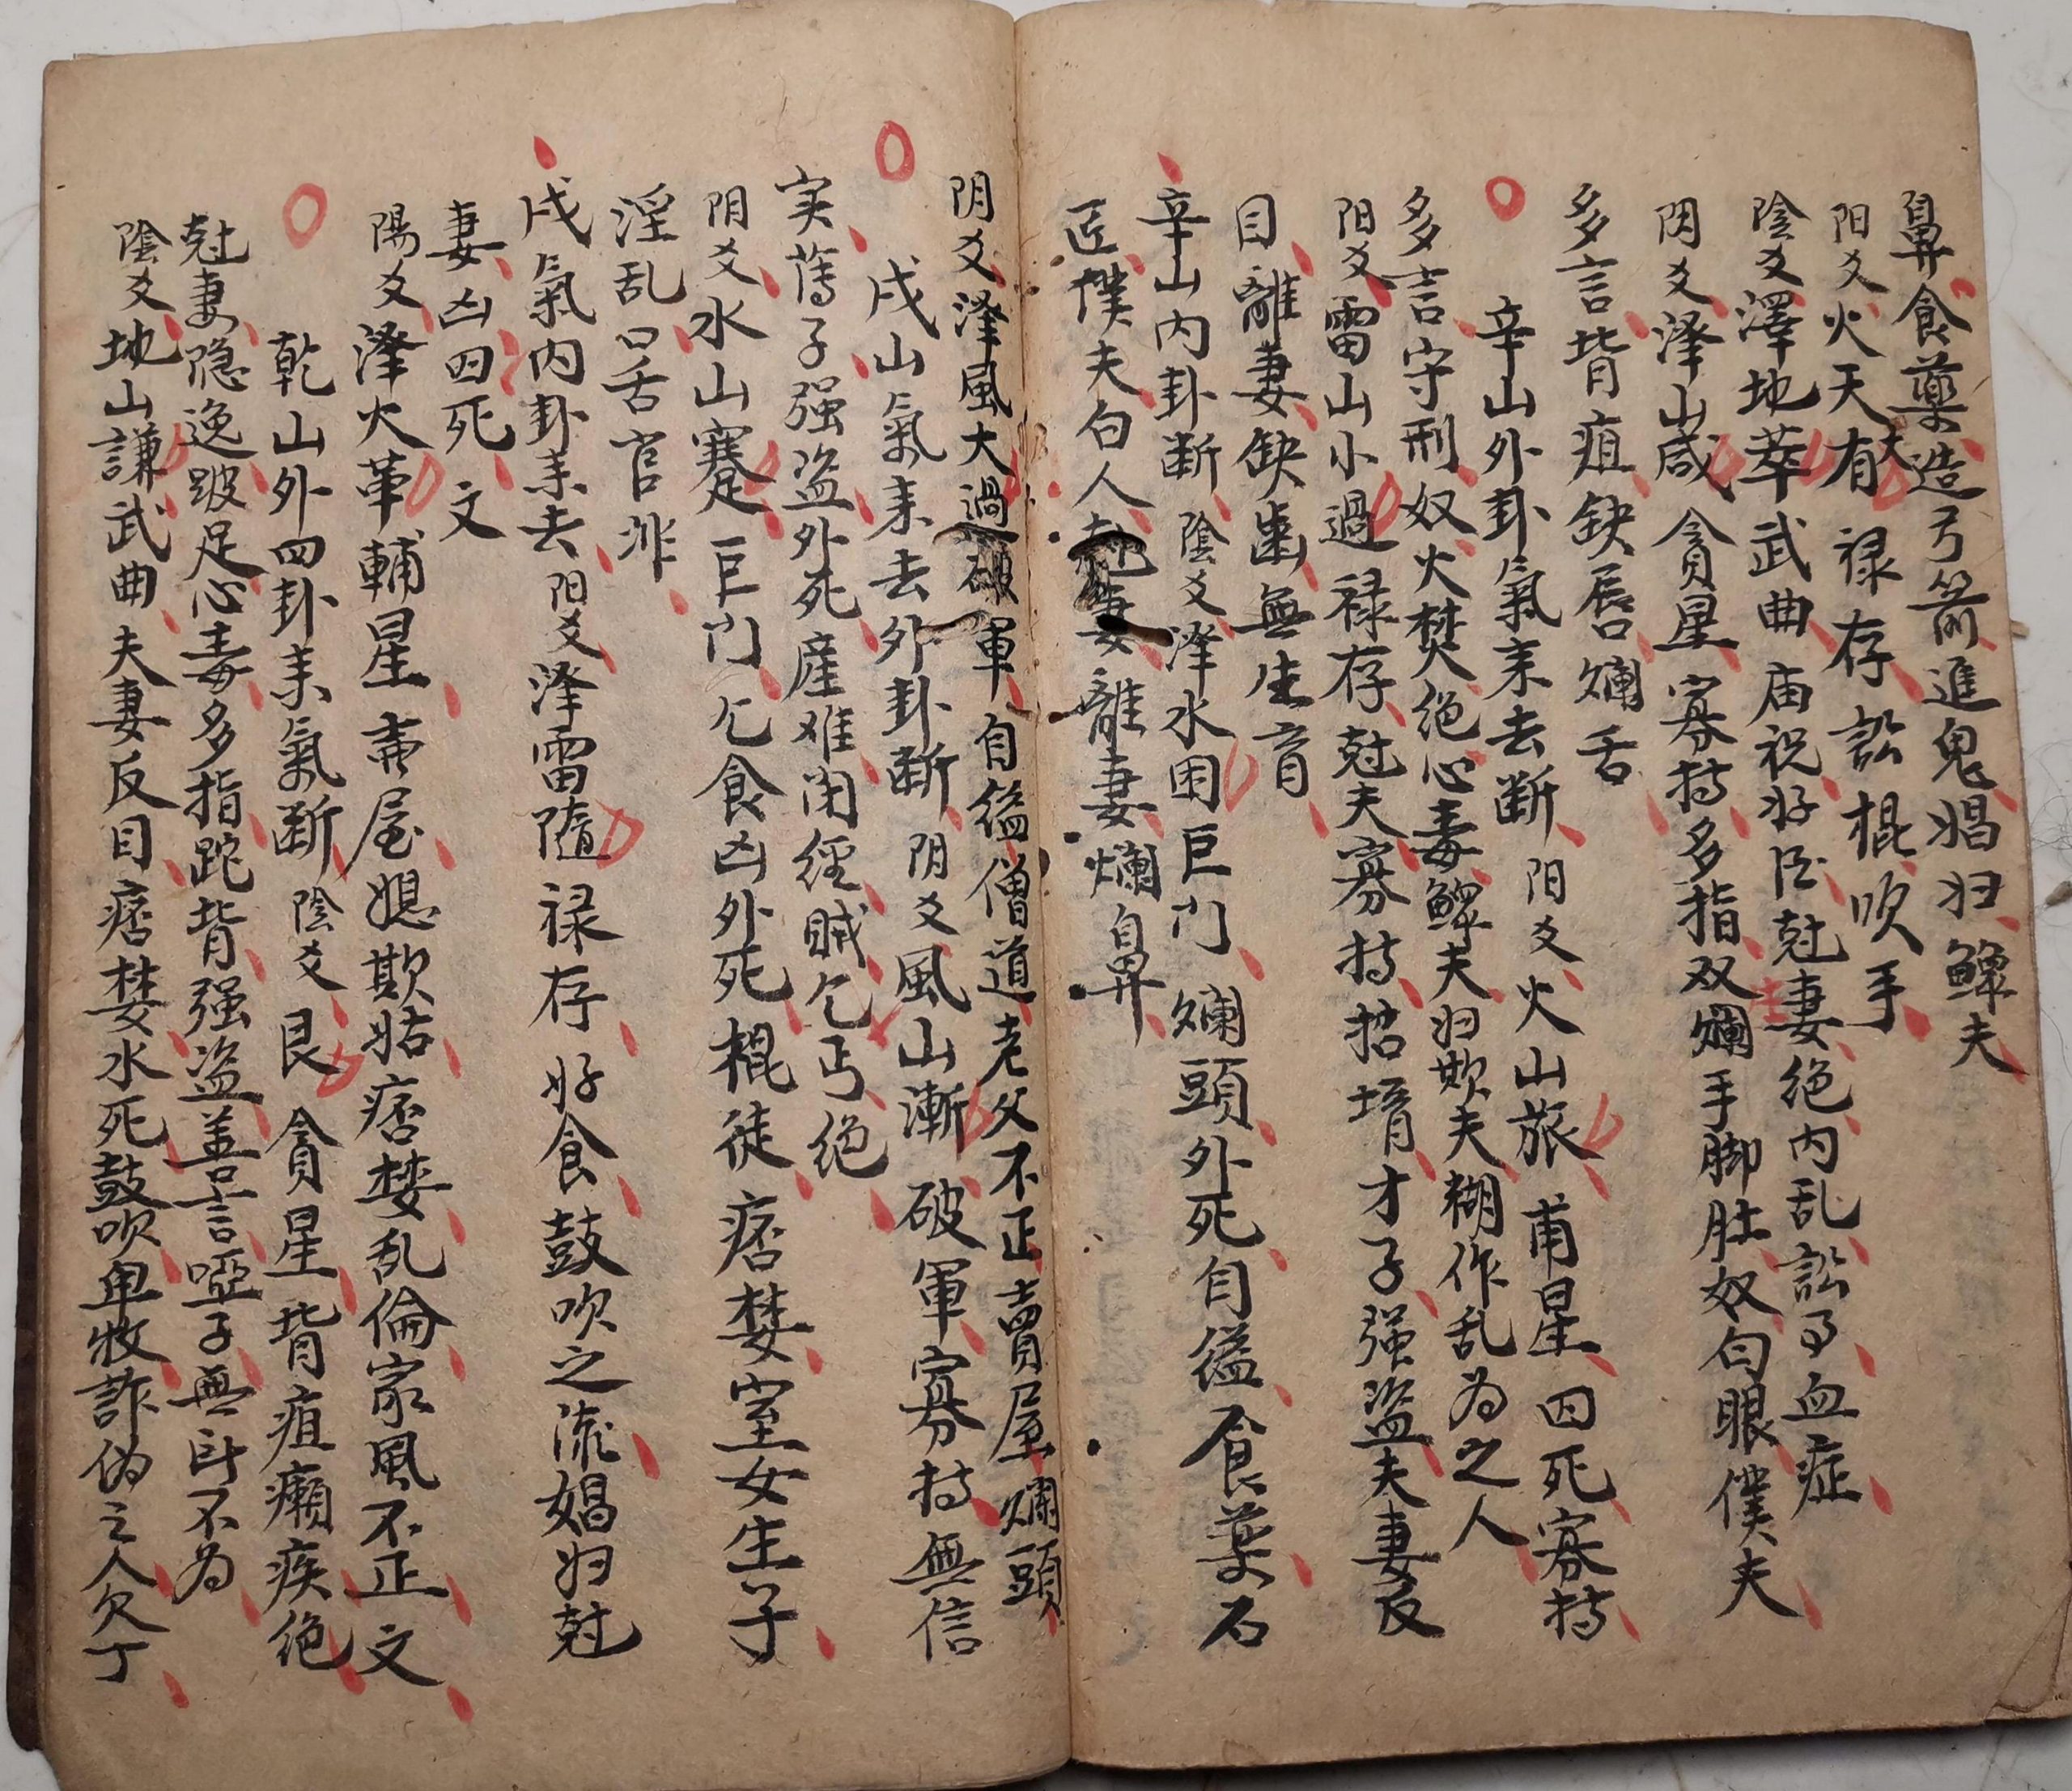 鼻食藥造弓箭進鬼娼妇鰥夫
阳爻火天大有禄存訟棍吹手
陰爻澤地萃武曲庙祝好臣尅妻绝内乱訟事血症
阴爻泽山咸貪星寡特多指双爛手脚肚奴勾眼僕夫
多言背疽缺唇爛舌
辛山外卦氣来去断阳爻火山旅甫星囚死寡特
多言守刑奴火焚绝心毒鰥夫妇欺夫糊作乱为之人
阳爻雷山小過禄存尅夫寡特招壻才子强盗夫妻反
目離妻缺歯無生育
辛山内卦断陰爻泽水困巨门爛頭外死自縊食药石
匠僕夫勾人妻離妻爛鼻
阴爻泽風大過破軍自縊僧道老父不正賣屋爛頭
戌山氣来去外卦断阴爻風山漸破軍寡特無信
实薄子强盗外死産难闭經贼乞丐绝
阴爻水山蹇巨门乞食凶外死棍徒痞婪室女生子
淫乱口舌官非
戌氣内卦来去阳爻泽雷隨禄存好食鼓吹之流娼妇尅
妻凶囚死文
陽爻泽火革輔星賣屋媳欺姑痞婪乱倫家風不正文
乾山外四卦来氣断陰爻艮貪星背疽癩疾绝
尅妻隐逸跛足心毒多指跎背强盗善言啞子無卧不为
陰爻地山謙武曲夫妻反目痞婪水死鼓吹卑牧詐伪之人欠丁